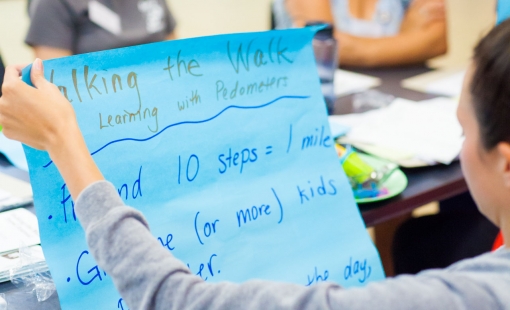 alking the Walk
Learning with Pedometers
nd 10 steps = 1 mile
• G (or more) kids
the day,